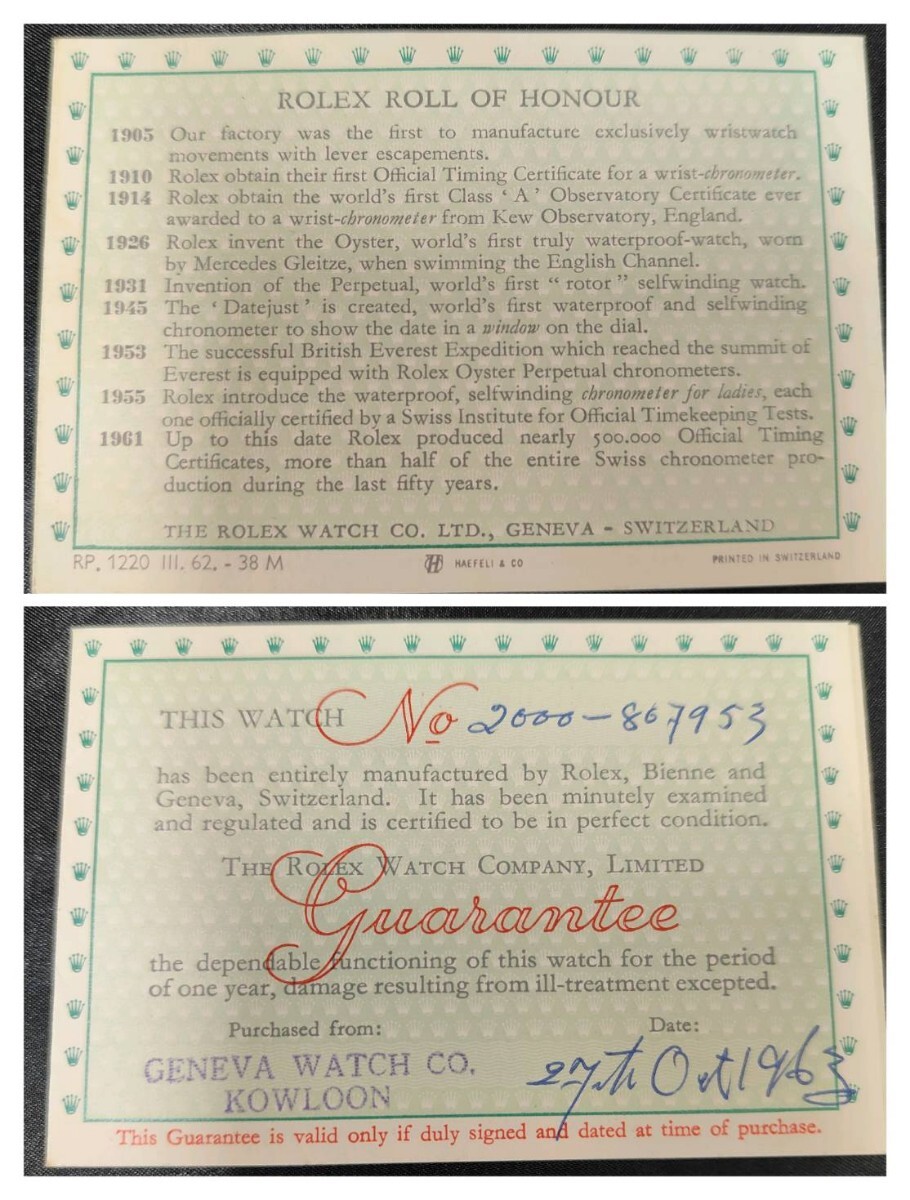 ROLEX ROLL OF HONOUR
1905 Our factory was the first to manufacture exclusively wristwatch
movements with lever escapements.
1910 Rolex obtain their first Official Timing Certificate for a wrist-chronometer.
1914 Rolex obtain the world's first Class ‘A’ Observatory Certificate ever
awarded to a wrist-chronometer from Kew Observatory, England.
1926 Rolex invent the Oyster, world's first truly waterproof-watch, worn
by Mercedes Gleitze, when swimming the English Channel.
1931 Invention of the Perpetual, world's first “rotor” selfwinding watch.
1945 The ‘Datejust’ is created, world's first waterproof and selfwinding
chronometer to show the date in a window on the dial.
1953 The successful British Everest Expedition which reached the summit of
Everest is equipped with Rolex Oyster Perpetual chronometers.
1955 Rolex introduce the waterproof, selfwinding chronometer for ladies, each
one officially certified by a Swiss Institute for Official Timekeeping Tests.
1961 Up to this date Rolex produced nearly 500.000 Official Timing
Certificates, more than half of the entire Swiss chronometer pro-
duction during the last fifty years.
THE ROLEX WATCH CO. LTD., GENEVA - SWITZERLAND
RP. 1220 III. 62. - 38 M HAEFELI & CO PRINTED IN SWITZERLAND
THIS WATCH No 2000-867953
has been entirely manufactured by Rolex, Bienne and
Geneva, Switzerland. It has been minutely examined
and regulated and is certified to be in perfect condition.
THE ROLEX WATCH COMPANY, LIMITED
Guarantee
the dependable functioning of this watch for the period
of one year, damage resulting from ill-treatment excepted.
Purchased from: Date:
GENEVA WATCH CO. 27th Oct 1963
KOWLOON
This Guarantee is valid only if duly signed and dated at time of purchase.